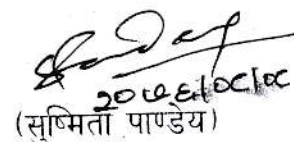 २०७६।०८।०८
(सुष्मिता पाण्डेय)